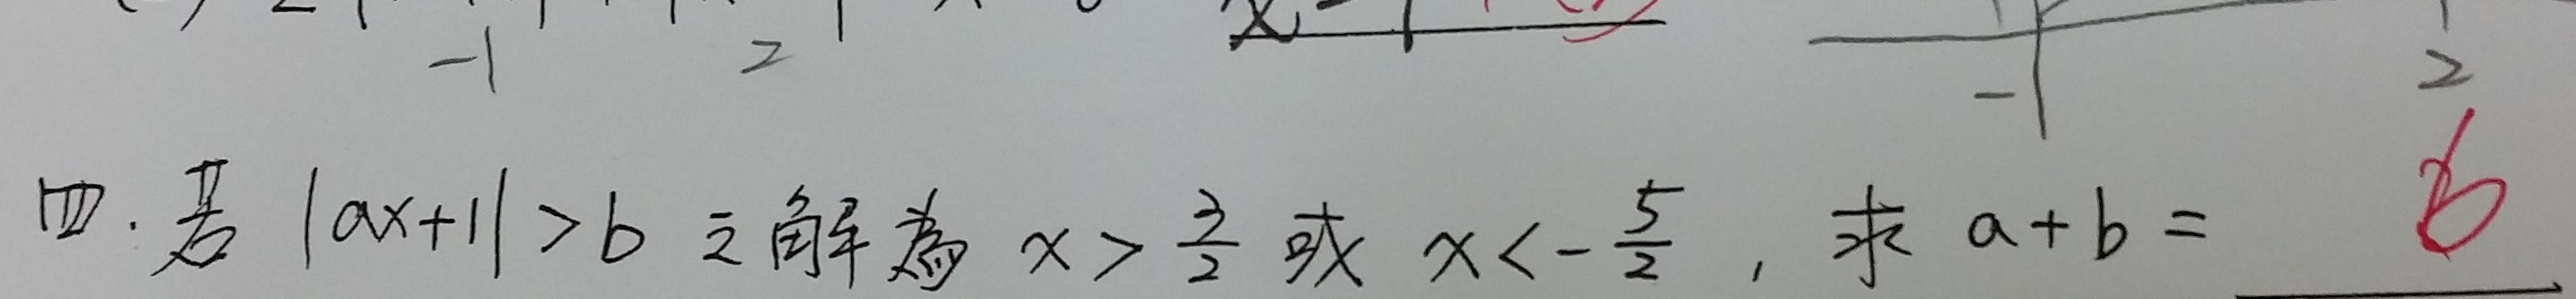 -1 2
-1 2
四. 若 |ax+1| > b 之解為 x > 3/2 或 x < -5/2 , 求 a+b = 6